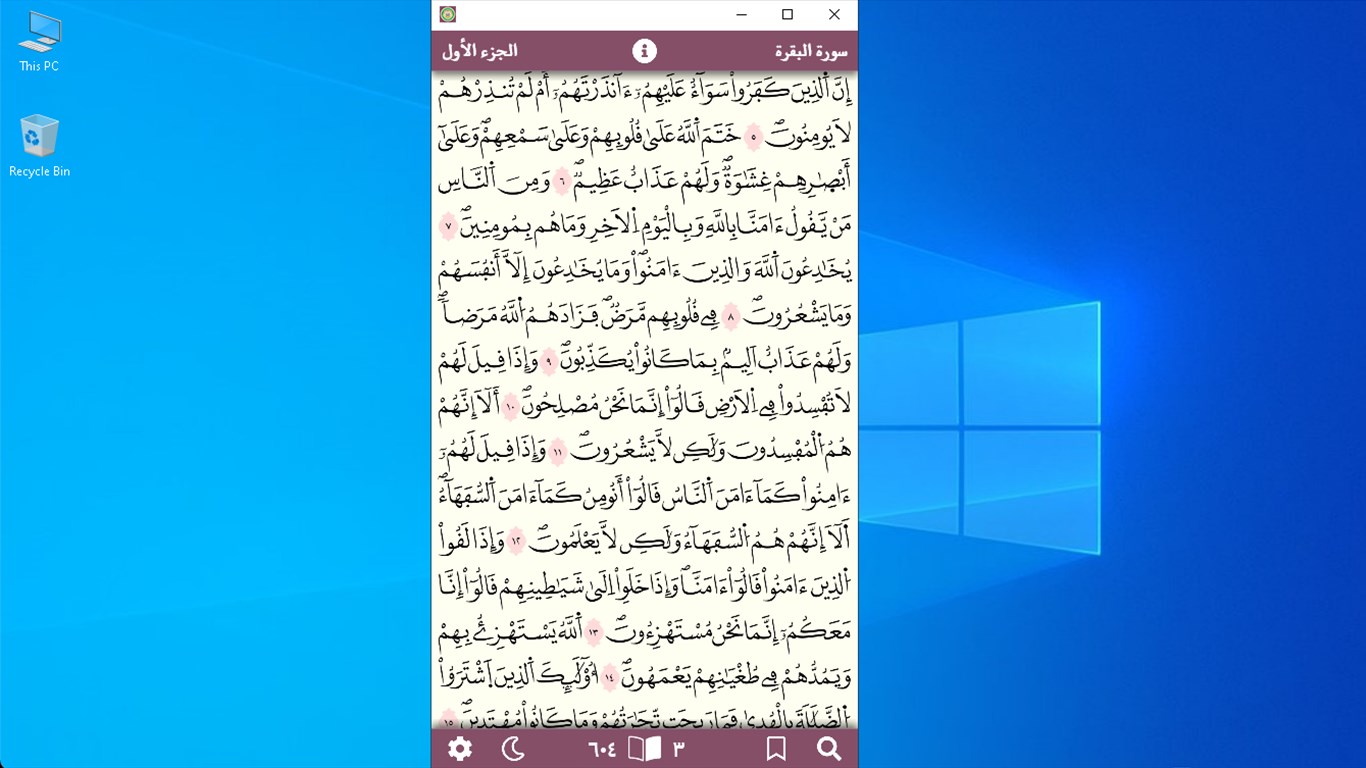 This PC
Recycle Bin
سورة البقرة
الجزء الأول
إِنَّ اَ۬لذِينَ كَفَرُواْ سَوَآءٌ عَلَيْهِمُۥٓ ءَآنذَرْتَهُمُۥٓ أَمْ لَمْ تُنذِرْهُمْ
لَا يُومِنُونَۖ ٥ خَتَمَ اَ۬للَّهُ عَلَىٰ قُلُوبِهِمْ وَعَلَىٰ سَمْعِهِمْۖ وَعَلَىٰٓ
أَبْصٰ۪رِهِمْ غِشَٰوَةٞۖ وَلَهُمْ عَذَابٌ عَظِيمٞۖ ٦ وَمِنَ اَ۬لنَّاسِ
مَنْ يَّقُولُ ءَامَنَّا بِاللَّهِ وَبِالْيَوْمِ اِ۬لَاخِرِ وَمَا هُم بِمُومِنِينَۖ ٧
يُخَٰدِعُونَ اَ۬للَّهَ وَالذِينَ ءَامَنُواْۖ وَمَا يُخَٰدِعُونَ إِلَّآ أَنفُسَهُمْ
وَمَا يَشْعُرُونَۖ ٨ فِے قُلُوبِهِم مَّرَضٞۖ فَزَادَهُمُ اُ۬للَّهُ مَرَضاٗۖ
وَلَهُمْ عَذَابٌ اَلِيمُۢ بِمَا كَانُواْ يُكَذِّبُونَۖ ٩ وَإِذَا قِيلَ لَهُمْ
لَا تُفْسِدُواْ فِے اِ۬لَارْضِ قَالُوٓاْ إِنَّمَا نَحْنُ مُصْلِحُونَۖ ١٠ أَلَآ إِنَّهُمْ
هُمُ اُ۬لْمُفْسِدُونَ وَلَٰكِن لَّا يَشْعُرُونَۖ ١١ وَإِذَا قِيلَ لَهُمُۥٓ
ءَامِنُواْ كَمَآ ءَامَنَ اَ۬لنَّاسُ قَالُوٓاْ أَنُومِنُ كَمَآ ءَامَنَ اَ۬لسُّفَهَآءُۖ
أَلَآ إِنَّهُمْ هُمُ اُ۬لسُّفَهَآءُ وَلَٰكِن لَّا يَعْلَمُونَۖ ١٢ وَإِذَا لَقُواْ
اُ۬لذِينَ ءَامَنُواْ قَالُوٓاْ ءَامَنَّاۖ وَإِذَا خَلَوِاْ اِلَىٰ شَيَٰطِينِهِمْ قَالُوٓاْ إِنَّا
مَعَكُمُۥٓ إِنَّمَا نَحْنُ مُسْتَهْزِءُونَۖ ١٣ اَ۬للَّهُ يَسْتَهْزِۓُ بِهِمْ
وَيَمُدُّهُمْ فِے طُغْيَٰنِهِمْ يَعْمَهُونَۖ ١٤ أُوْلَٰٓئِكَ اَ۬لذِينَ اَ۪شْتَرَوُاْ
اُ۬لضَّلَٰلَةَ بِالْهُد۪ىٰ فَمَا رَبِحَت تِّجَٰرَتُهُمْ وَمَا كَانُواْ مُهْتَدِينَۖ ١٥
٣
٦٠٤